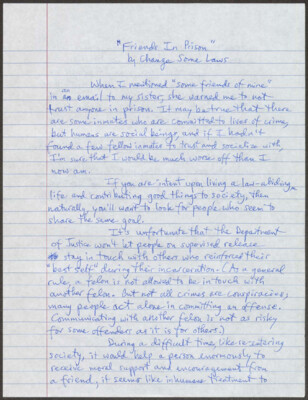 "Friends In Prison"
by Change Some Laws
When I mentioned "some friends of mine"
in an email to my sister, she warned me to not
trust anyone in prison. It may be true that there
are some inmates who are committed to lives of crime,
but humans are social beings, and if I hadn't
found a few fellow inmates to trust and socialize with,
I'm sure that I would be much worse off than I
now am.
If you are intent upon living a law-abiding
life and contributing good things to society, then
naturally, you'll want to look for people who seem to
share the same goal.
It's unfortunate that the Department
of Justice won't let people on supervised release
stay in touch with others who reinforced their
"best self" during their incarceration. (As a general
rule, a felon is not allowed to be in touch with
another felon. But not all crimes are conspiracies;
many people act alone in committing an offense.
Communicating with another felon is not as risky
for some offenders as it is for others.)
During a difficult time, like re-entering
society, it would help a person enormously to
receive moral support and encouragement from
a friend; it seems like inhumane treatment to